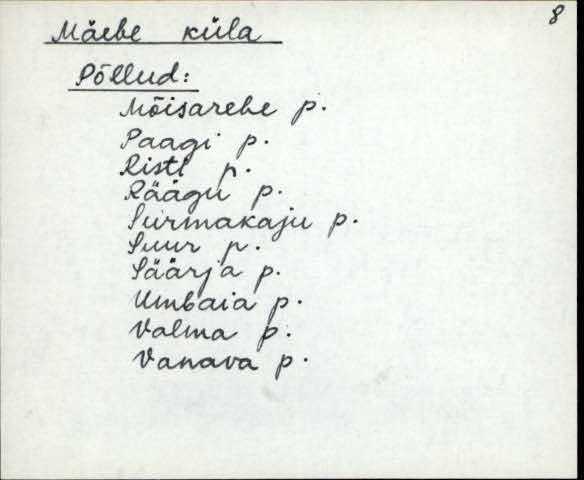 8
Mäebe küla
Põllud:
Mõisarebe p.
Paagi p.
Risti p.
Räägu p.
Surmakaju p.
Suur p.
Säärja p.
Umbaia p.
Valma p.
Vanava p.